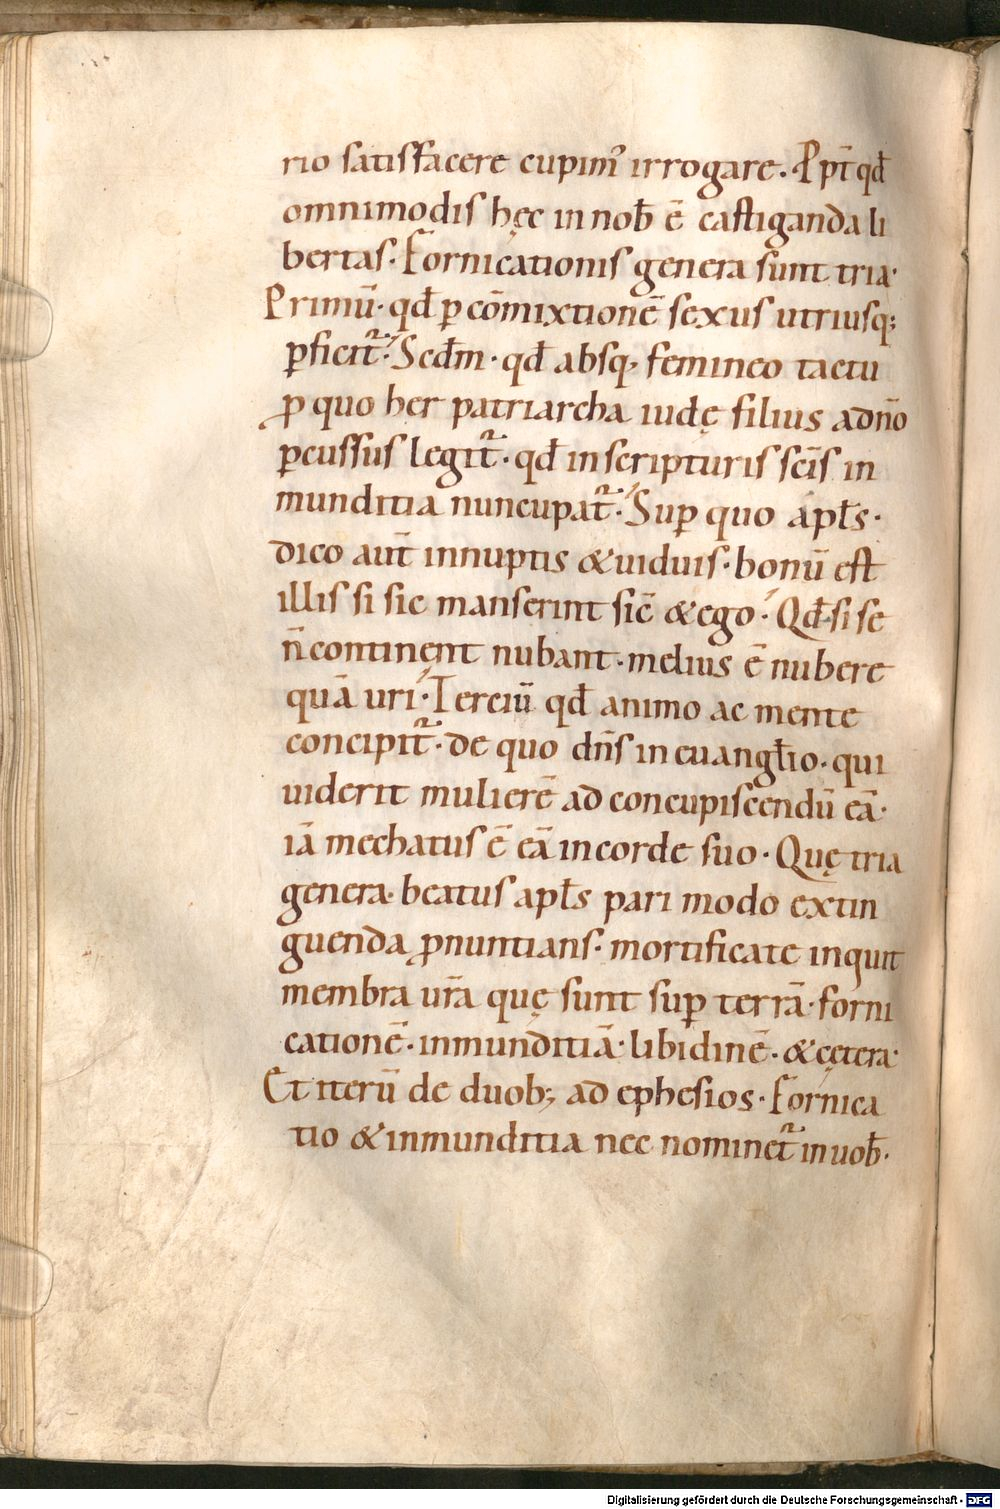 rio satisfacere cupim᾽ irrogare. Ppt̄ qđ
omnimodis hęc in nob̄ ē castiganda li
bertas. Fornicationis genera sunt tria.
Primū. qđ ꝑ cōmixtionē sexus utriusq;
ꝑficit᷑. Scđm. qđ absq, femineo tactu
ꝓ quo her patriarcha iudę filius a dn̄o
ꝑcussus legit᷑. qđ in scripturis scīs in
munditia nuncupat᷑. Suꝑ quo apl̄s.
dico aut̄ innuptis & uiduis. bonū est
illis si sic manserint sic̄ & ego. Qđ si se
n̄ continent nubant. melius ē nubere
quā uri. Terciū qđ animo ac mente
concipit᷑. de quo dn̄s in euangl̄io. qui
uiderit mulierē ad concupiscendū eā.
iā mechatus ē eā in corde suo. Quę tria
genera. beatus apl̄s pari modo extin
guenda ꝓnuntians. mortificate inquit
membra ur̄a quę sunt suꝑ terrā. forni
cationē. inmunditiā. libidinē. & cętera.
Et iterū de duob; ad ephesios. Fornica
tio & inmunditia nec nominet᷑ in uob̄.
Digitalisierung gefördert durch die Deutsche Forschungsgemeinschaft - DFG